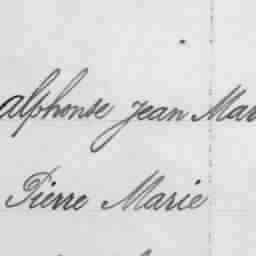 alphonse Jean Mar
Pierre Marie